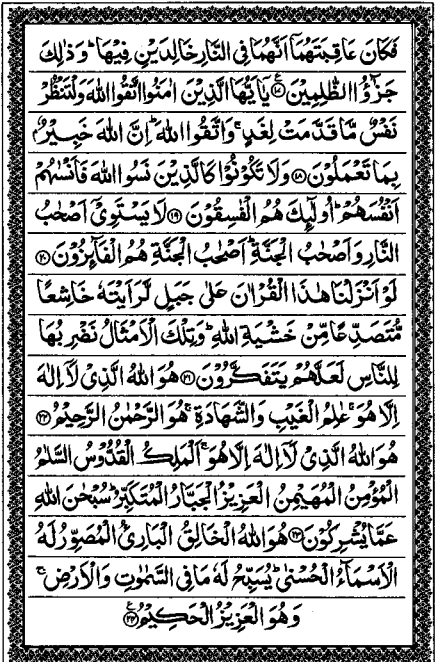 فَكَانَ عَاقِبَتَهُمَآ اَنَّهُمَا فِى النَّارِ خَالِدَيْنِ فِيْهَا ؕ وَذٰلِكَ
جَزٰٓؤُا الظّٰلِمِيْنَ ﴿۱۷﴾ يٰۤاَيُّهَا الَّذِيْنَ اٰمَنُوا اتَّقُوا اللّٰهَ وَلْتَنْظُرْ
نَفْسٌ مَّا قَدَّمَتْ لِغَدٍ ۚ وَاتَّقُوا اللّٰهَ ؕ اِنَّ اللّٰهَ خَبِيْرٌۢ
بِمَا تَعْمَلُوْنَ ﴿۱۸﴾ وَلَا تَكُوْنُوْا كَالَّذِيْنَ نَسُوا اللّٰهَ فَاَنْسٰىهُمْ
اَنْفُسَهُمْ ؕ اُولٰٓئِكَ هُمُ الْفٰسِقُوْنَ ﴿۱۹﴾ لَا يَسْتَوِىْۤ اَصْحٰبُ
النَّارِ وَاَصْحٰبُ الْجَنَّةِ ؕ اَصْحٰبُ الْجَنَّةِ هُمُ الْفَآئِزُوْنَ ﴿۲۰﴾
لَوْ اَنْزَلْنَا هٰذَا الْقُرْاٰنَ عَلٰى جَبَلٍ لَّرَاَيْتَهٗ خَاشِعًا
مُّتَصَدِّعًا مِّنْ خَشْيَةِ اللّٰهِ ؕ وَتِلْكَ الْاَمْثَالُ نَضْرِبُهَا
لِلنَّاسِ لَعَلَّهُمْ يَتَفَكَّرُوْنَ ﴿۲۱﴾ هُوَ اللّٰهُ الَّذِىْ لَاۤ اِلٰهَ
اِلَّا هُوَ ۚ عٰلِمُ الْغَيْبِ وَالشَّهَادَةِ ۚ هُوَ الرَّحْمٰنُ الرَّحِيْمُ ﴿۲۲﴾
هُوَ اللّٰهُ الَّذِىْ لَاۤ اِلٰهَ اِلَّا هُوَ ۚ اَلْمَلِكُ الْقُدُّوْسُ السَّلٰمُ
الْمُؤْمِنُ الْمُهَيْمِنُ الْعَزِيْزُ الْجَبَّارُ الْمُتَكَبِّرُ ؕ سُبْحٰنَ اللّٰهِ
عَمَّا يُشْرِكُوْنَ ﴿۲۳﴾ هُوَ اللّٰهُ الْخَالِقُ الْبَارِئُ الْمُصَوِّرُ لَهُ
الْاَسْمَآءُ الْحُسْنٰى ؕ يُسَبِّحُ لَهٗ مَا فِى السَّمٰوٰتِ وَالْاَرْضِ ۚ
وَهُوَ الْعَزِيْزُ الْحَكِيْمُ ﴿۲۴﴾